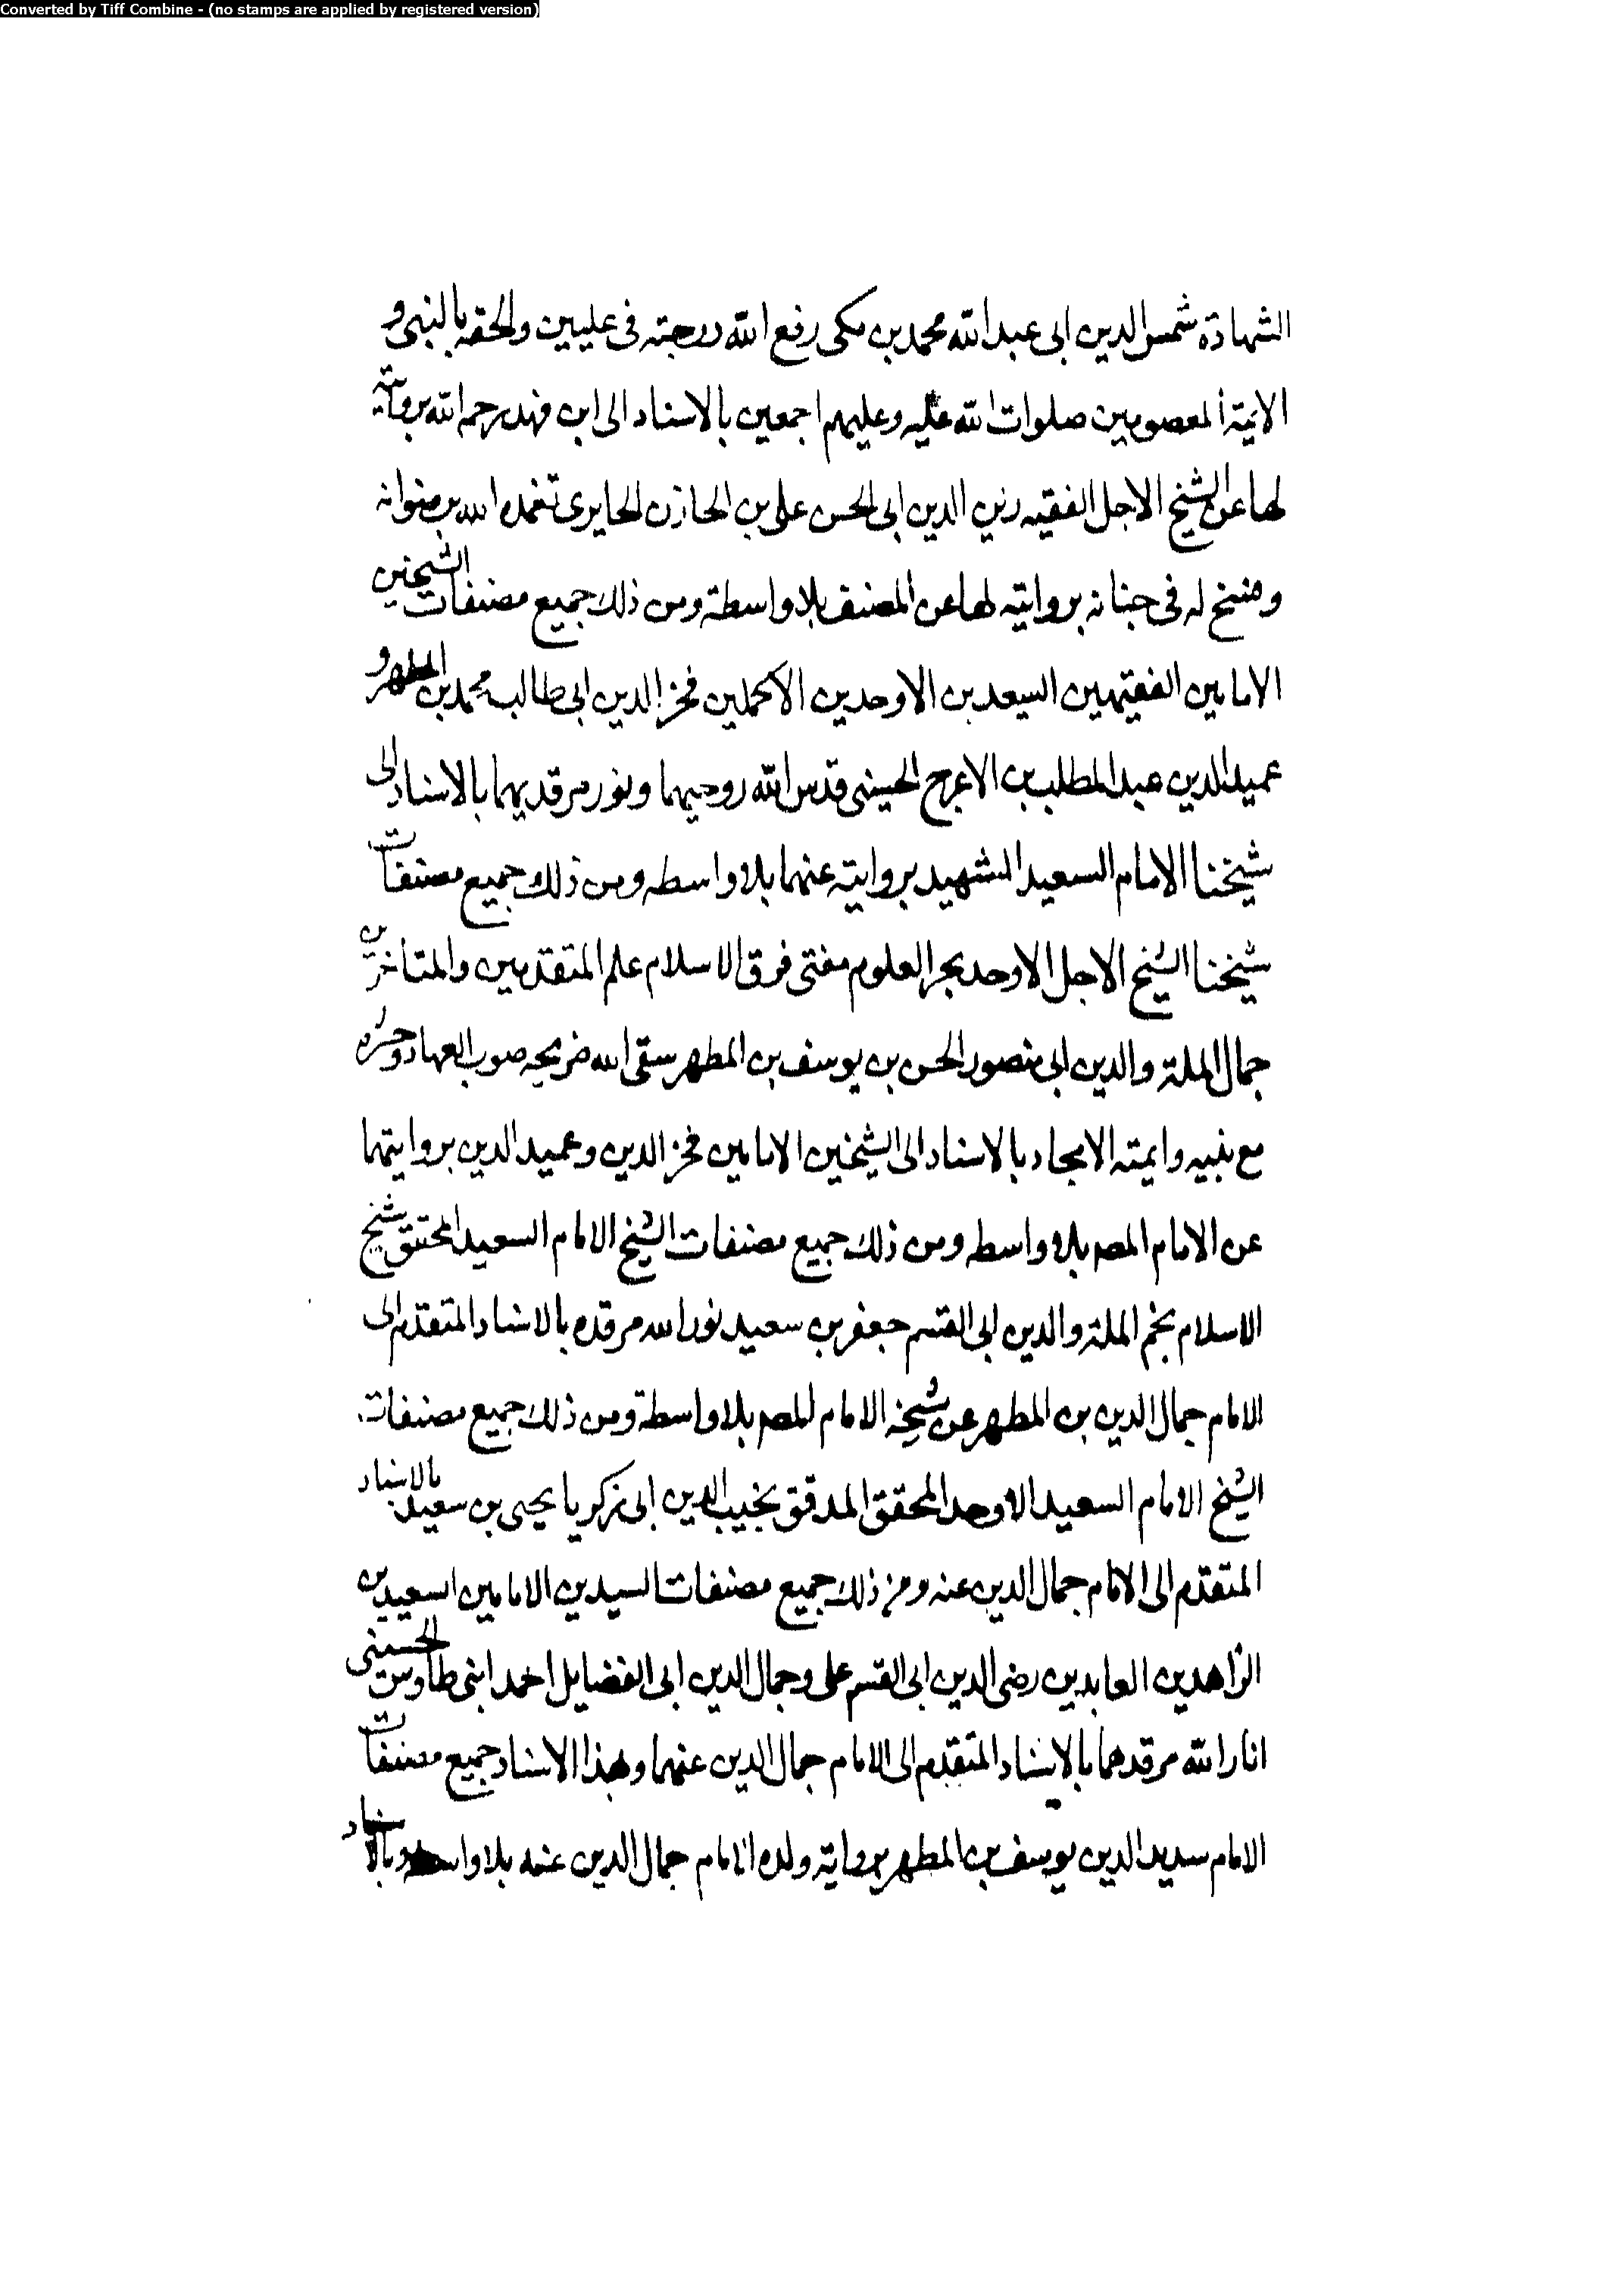 Converted by Tiff Combine - (no stamps are applied by registered version)
الشهادة شمس الدين ابى عبد الله محمد بن مكى رفع الله درجته فى عليين والحقه بالنبى و
الائمة المعصومين صلوات الله عليه وعليهم اجمعين بالاسناد الى ابن فهد رحمه الله بروايته
لها عن الشيخ الاجل الفقيه زين الدين ابى الحسن على بن الخازن الحايرى تغمده الله برضوانه
له فى جنانه بروايته لها عن المصنف بلا واسطة ومن ذلك جميع مصنفات الشيخين
الامامين الفقيهين السعيدين الاوحدين الاكملين فخر الدين ابى طالب محمد بن المطهر و
عميد الدين عبد المطلب بن الاعرج الحسينى قدس الله روحيهما ونور مرقديهما بالاسناد الى
شيخنا الامام السعيد الشهيد بروايته عنهما بلا واسطه ومن ذلك جميع مصنفات
شيخنا الشيخ الاجل الاوحد بحر العلوم مفتى فرق الاسلام علم المتقدمين والمتاخرين
جمال الملة والدين ابى منصور الحسن بن يوسف بن المطهر سقى الله ضريحه صوب العهاد وحشره
مع نبيه وايمته الامجاد بالاسناد الى الشيخين الامامين فخر الدين وعميد الدين بروايتهما
عن الامام المص بلا واسطه ومن ذلك جميع مصنفات الشيخ الامام السعيد المحقق شيخ
الاسلام نجم الملة والدين ابى القسم جعفر بن سعيد نور الله مرقده بالاسناد المتقدم الى
الامام جمال الدين بن المطهر عن شيخه الامام المص بلا واسطة ومن ذلك جميع مصنفات
الشيخ الامام السعيد الاوحد المحقق المدقق نجيب الدين ابى زكريا يحيى بن سعيد بالاسناد
المتقدم الى الامام جمال الدين عنه ومن ذلك جميع مصنفات السيدين الامامين السعيدين
الزاهدين العابدين رضى الدين ابى القسم على وجمال الدين ابى الفضايل احمد ابنى طاوس الحسينى
انار الله مرقدهما بالاسناد المتقدم الى الامام جمال الدين عنهما وبهذا الاسناد جميع مصنفات
الامام سديد الدين يوسف بن المطهر برواية ولده الامام جمال الدين عنه بلا واسطه وبالاسناد